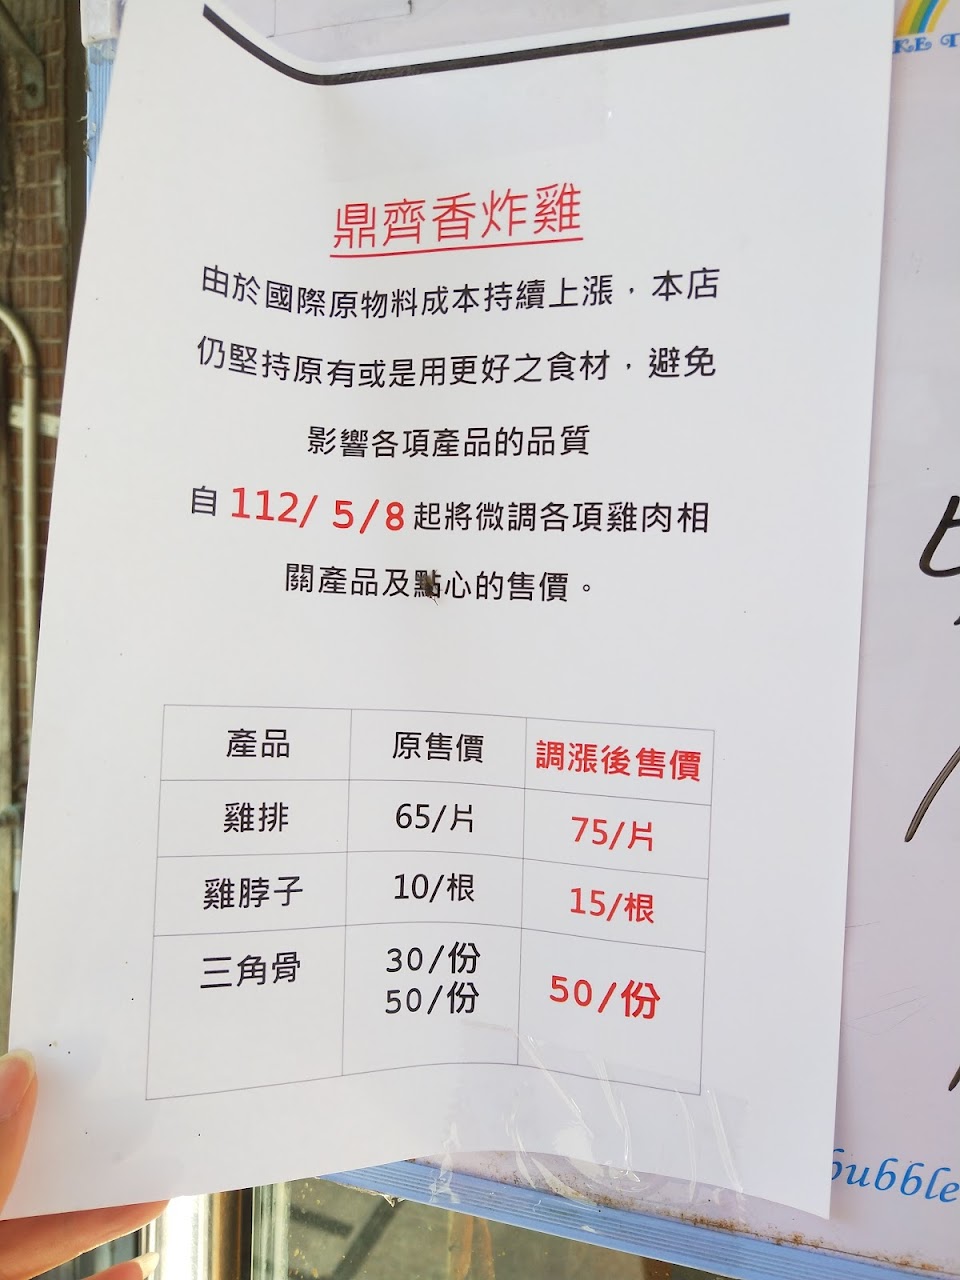 鼎齊香炸雞
由於國際原物料成本持續上漲，本店
仍堅持原有或是用更好之食材，避免
影響各項產品的品質
自 112/ 5/8 起將微調各項雞肉相
關產品及點心的售價。
產品 原售價 調漲後售價
雞排 65/片 75/片
雞脖子 10/根 15/根
三角骨 30/份 50/份
50/份
bubble